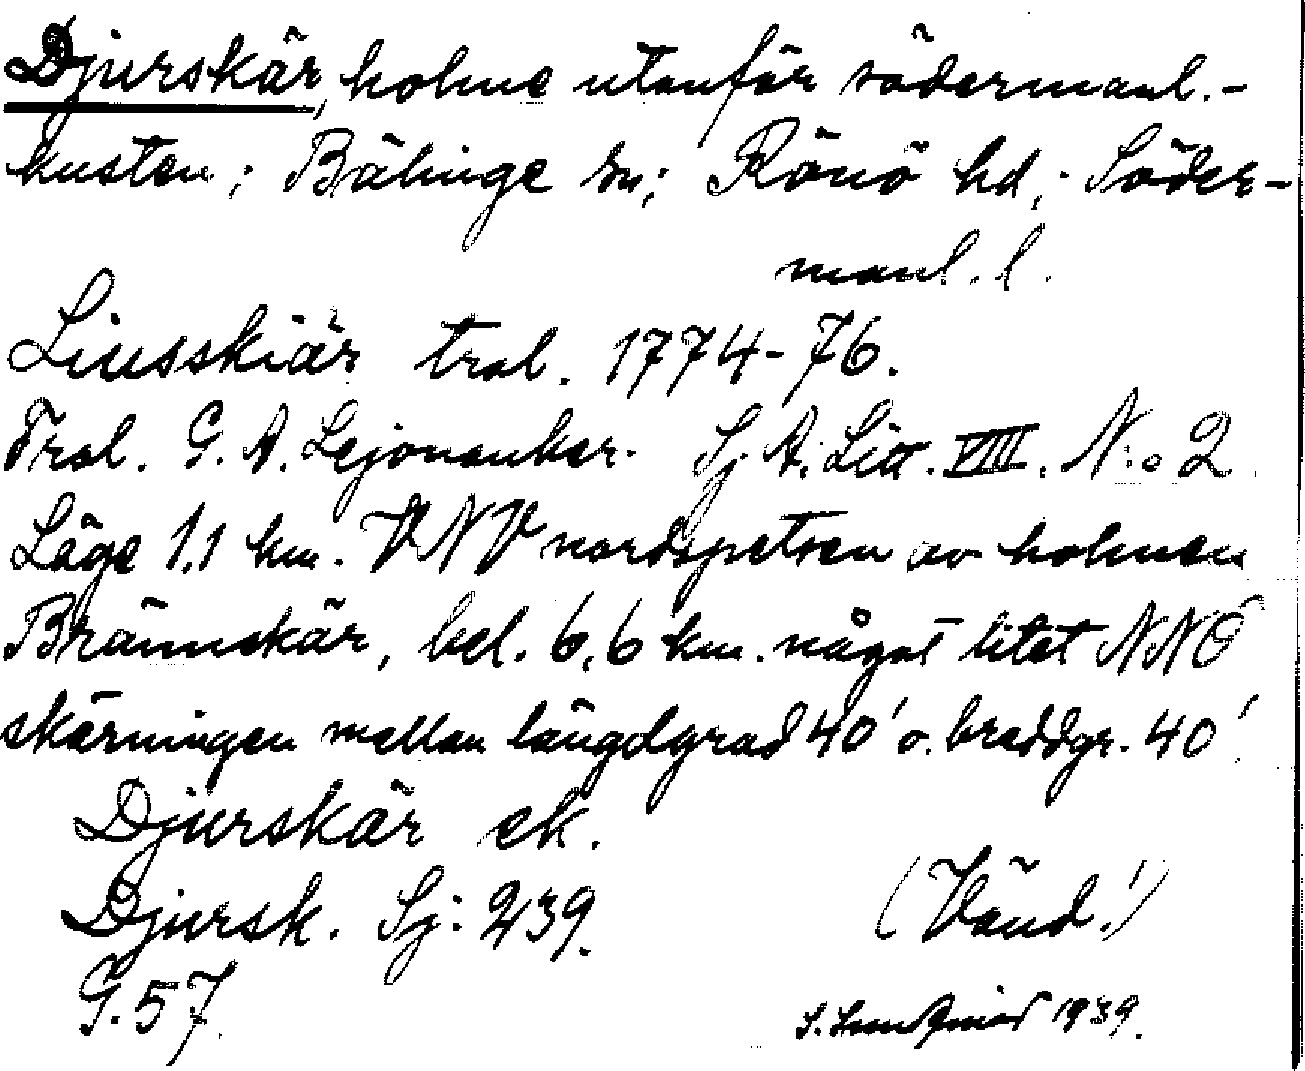 Djurskär, holme utanför södermanl.-
kusten; Bälinge sn; Rönö hd; Söder-
manl. l.
Liusskiär tral. 1774-76.
Tral. G. A. Lejonanker. Sj A. Litt. VIII. N:o 2.
Läge 1,1 km. VNV nordspetsen av holmen
Brännskär, bel. 6,6 km. något litet NNÖ
skärningen mellan längdgrad 40' o. breddgr. 40'.
Djurskär ek.
Djursk. Sj: 239.
(Vänd!)
G. 57.
1939.